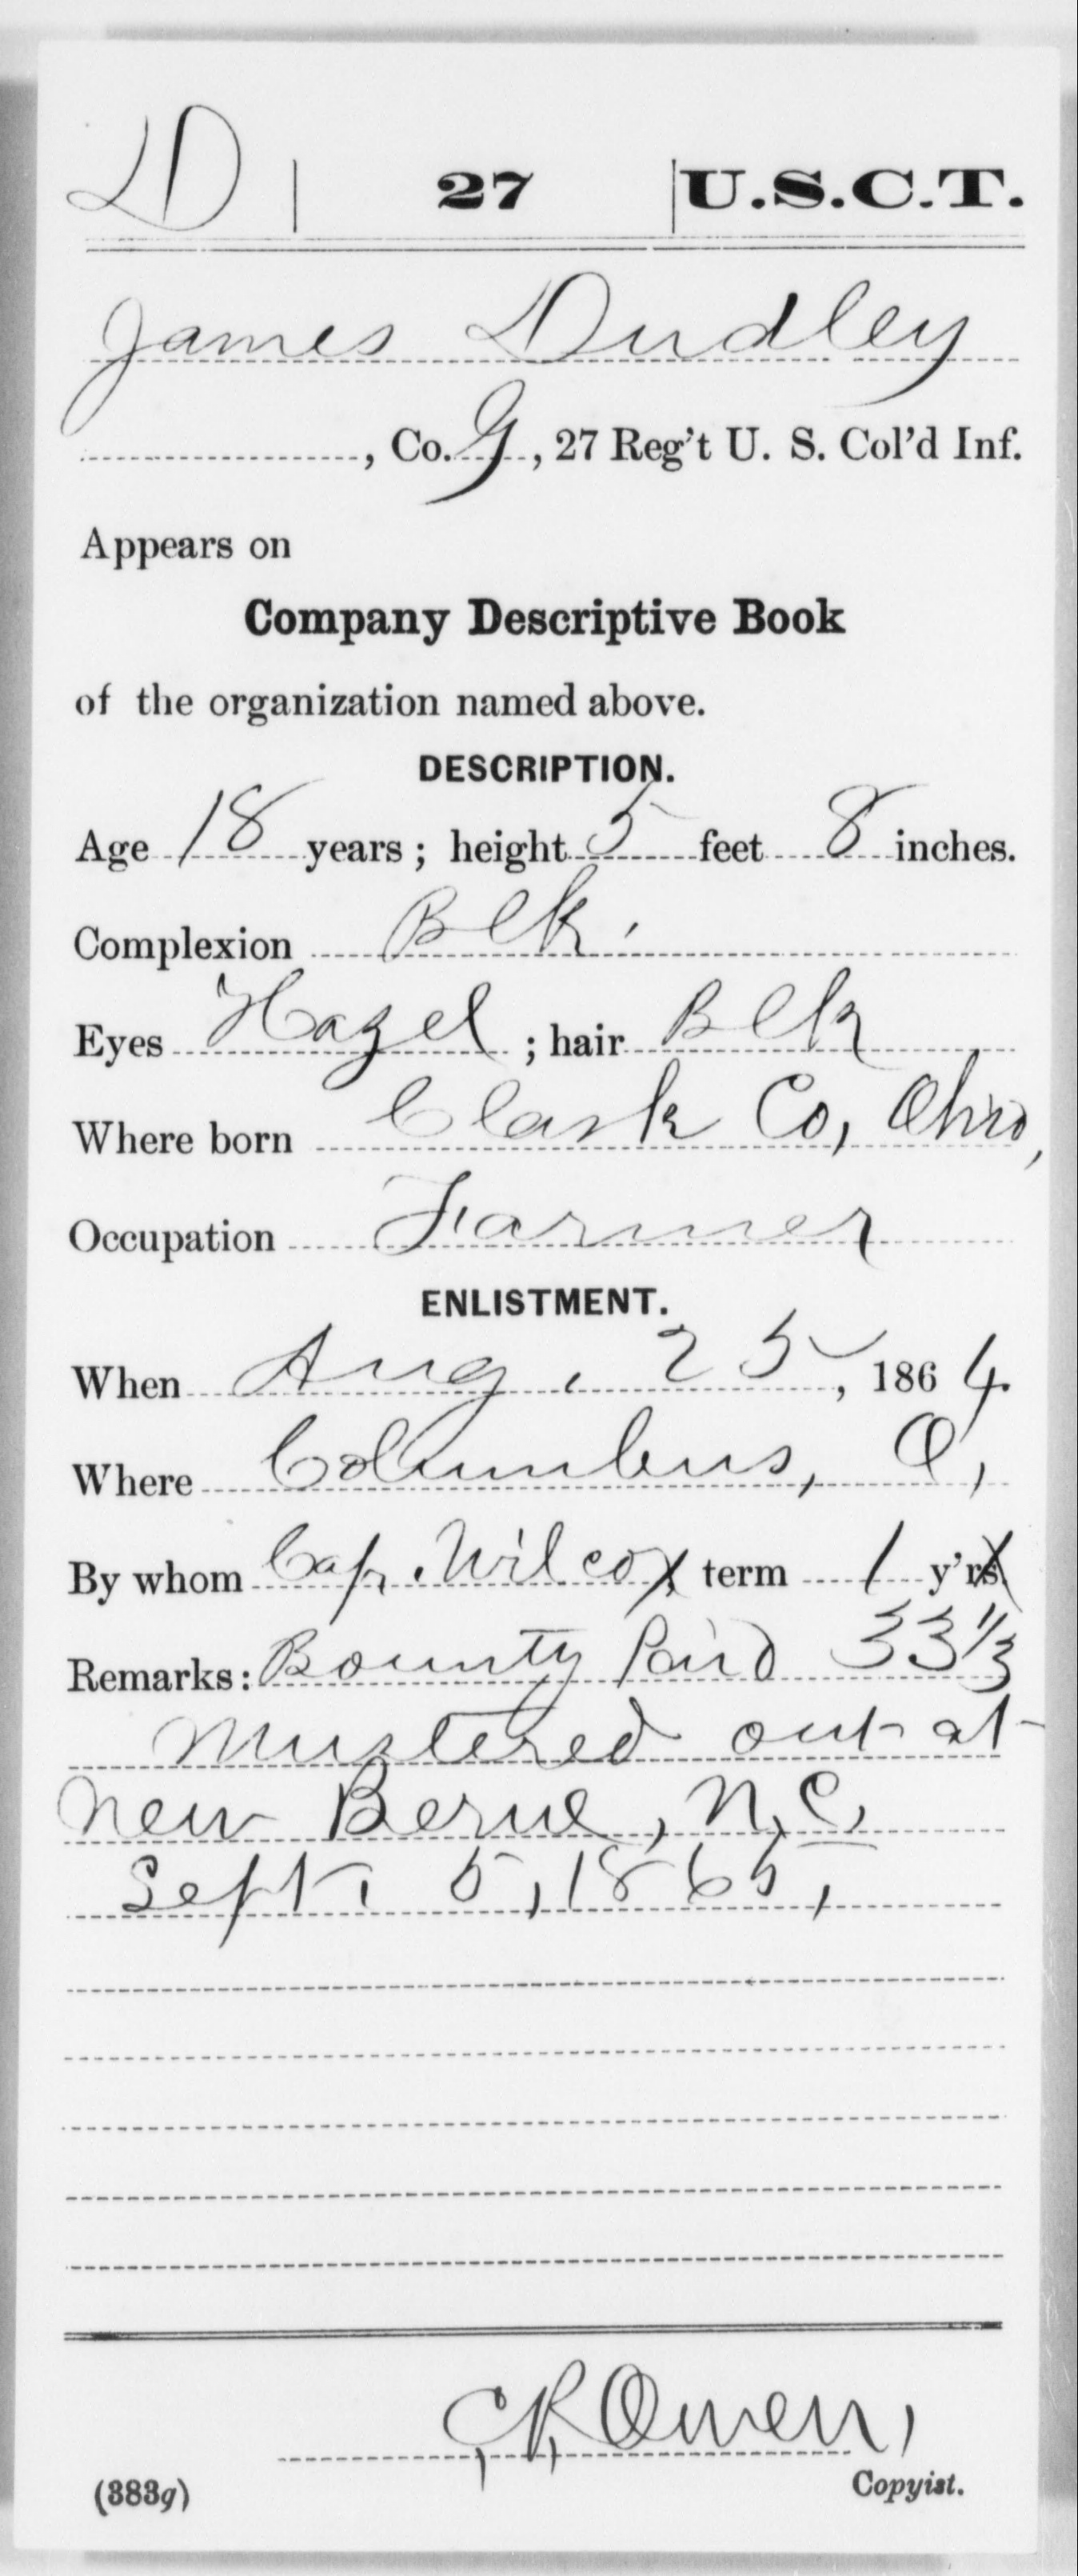 D | 27 | U.S.C.T.
James Dudley
, Co. G, 27 Reg't U. S. Col'd Inf.
Appears on
Company Descriptive Book
of the organization named above.
DESCRIPTION.
Age 18 years; height 5 feet 8 inches.
Complexion Blk.
Eyes Hazel; hair Blk
Where born Clark Co, Ohio,
Occupation Farmer
ENLISTMENT.
When Aug. 25, 1864.
Where Columbus, O,
By whom Cap. Wilcox, term 1 y'rs.
Remarks: Bounty Paid 33 1/3
Mustered out at
New Berne, N,C,
Sept. 5, 1865,
C,R, Owen,
(383g) Copyist.